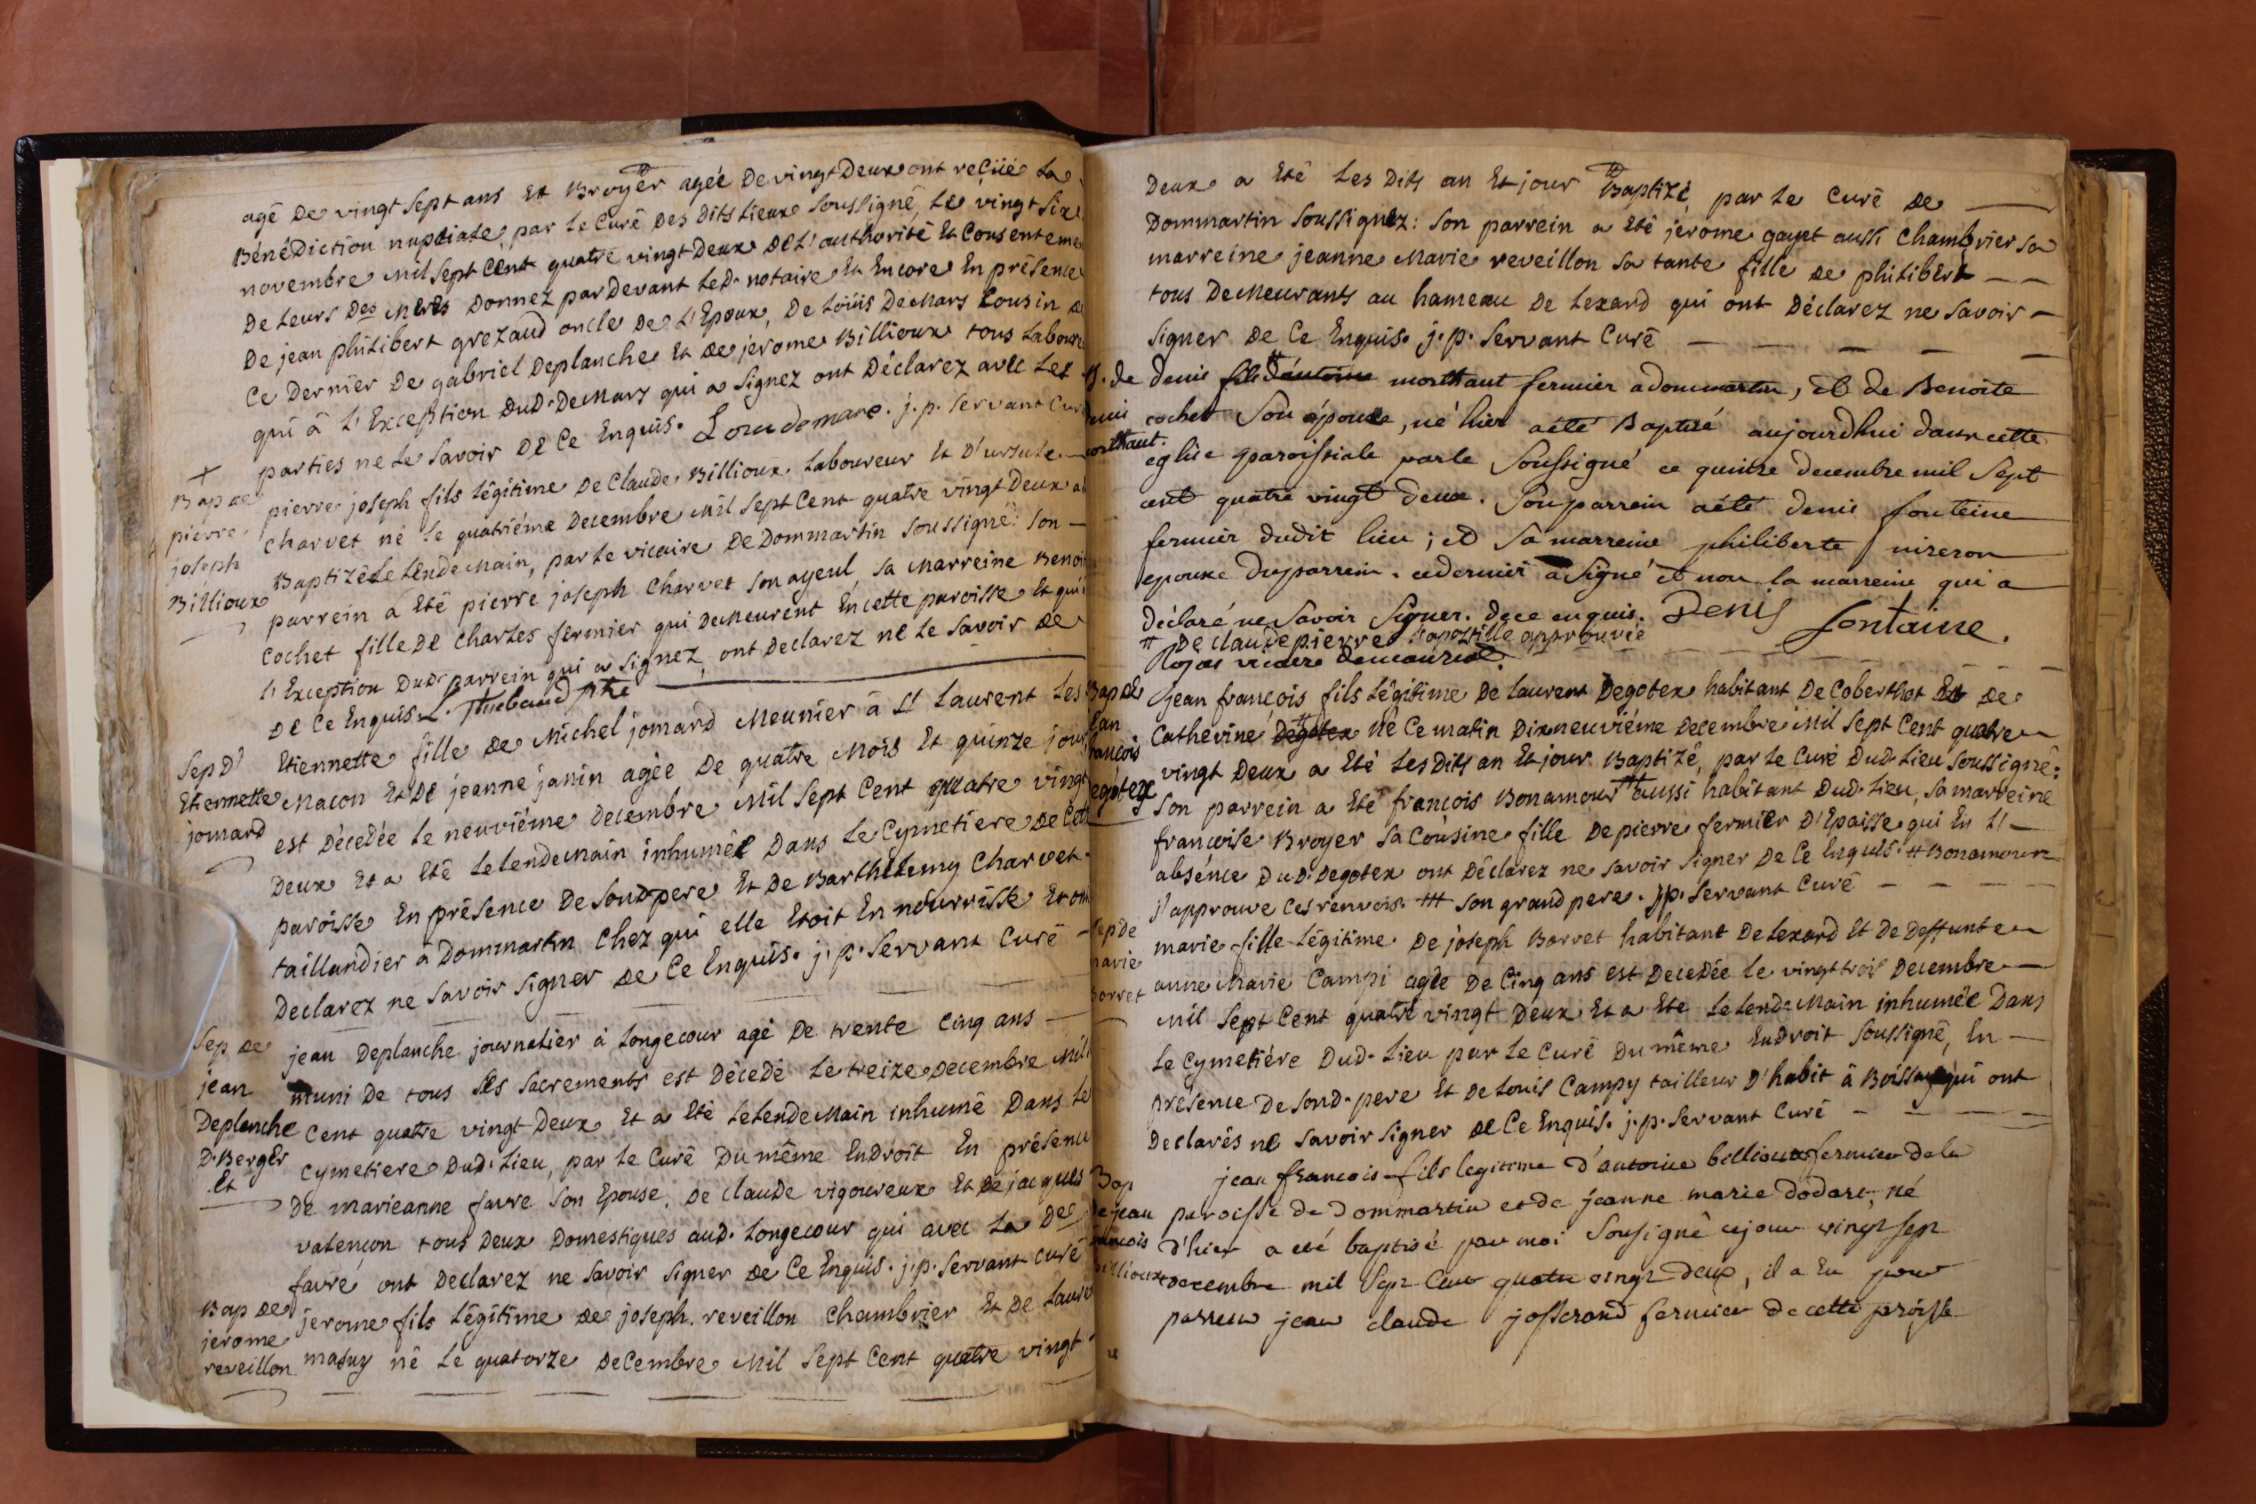 agé De vingt Sept ans Et Broyer agée De vingt Deux ont reçüe La
Bénédiction nuptiale, par le Curé Des Dits Lieux Soussigné, Le vingt Six
novembre Mil Sept Cent quatre vingt Deux De L'authorité Et Consenteme
De Leurs Des Meres Donnez par Devant Led. notaire Et Encore En présence
De jean philibert grezaud oncle De L'Epoux, De Loüis DeMars Cousin
Ce Dernier De gabriel Deplanche Et De jerome Billioux tous Labour
qui â L'Exception Dud. DeMars qui a Signez ont Déclarez avec Les
parties ne Le Savoir De Ce Enquis. Loui demars. j. p. Servant Curé
+
Bap de
pierre
joseph
Billioux
pierre joseph fils Légitime De Claude Billioux Laboureur Et D'ursule
Charvet né Le quatriéme Decembre Mil Sept Cent quatre vingt Deux a
Baptizé Le LendeMain, par Le vicaire De Dommartin Soussigné: Son
parrein a Eté pierre joseph Charvet Son ayeul, Sa Marreine Benoi
Cochet fille De Charles fermier qui DeMeurent En cette paroisse Et qui
L'Exception Dud. parrein qui a Signez, ont Declarez ne Le Savoir De
De Ce Enquis. L. Thiebaud ptre
Sep D'
Etiennette
jomard
Etiennette fille De Michel jomard Meunier â St Laurent Les
Macon Et De jeanne janin agée De quatre Mois Et quinze jour
est Décedée Le neuviéme Decembre Mil Sept Cent quatre vingt
Deux Et a Eté Le LendeMain inhumée Dans Le Cymetiere De Cett
paroisse En présence De Sond. pere Et De Barthelemy Charvet
taillandier â Dommartin Chez qui elle Etoit En nourrisse Et on
Declarez ne Savoir Signer De Ce Enquis. j. p. Servant Curé
Sep De
jean
Deplanche
D. Berger
Et
jean Deplanche journalier â Longecour agé De trente Cinq ans
muni De tous Ses Sacrements est Décedé Le treize Decembre Mil
Cent quatre vingt Deux Et a Eté Le LendeMain inhumé Dans Le
Cymetiere Dud. Lieu, par Le Curé Du même Endroit En présence
De marieanne favre Son Epouse, De Claude vigoureux Et De jacques
valencon tous Deux Domestiques aud. Longecour qui avec La De
favre ont Declarez ne Savoir Signer De Ce Enquis. j. p. Servant Curé
Bap De
jerome
reveillon
jerome fils Légitime De joseph reveillon Chambrier Et De Laure
né Le quatorze Decembre Mil Sept Cent quatre vingt
Deux a Eté Les Dits an Et jour Baptizé par Le Curé De
Dommartin Soussignez: Son parrein a Eté jerome gayet aussi Chambrier Sa
marreine jeanne Marie reveillon Sa tante fille De philibert
tous DeMeurants au hameau De Lexard qui ont Déclarez ne Savoir
Signer De Ce Enquis. j. p. Servant Curé
B. de
enis
orthaut.
denis fils d'antoine morthaut fermier a dommartin, et de Benoite
cochet Son épouse, né hier a été Baptisé aujourdhui dans cette
eglise paroissiale par le Soussigné ce quinze decembre mil Sept
cent quatre vingt deux. Son parrein a été denis fonteine
fermier dudit lieu; et Sa marreine philiberte nizeron
epouse du parrein. ce dernier a Signé et non la marreine qui a
déclaré ne Savoir Signer. de ce enquis. Denis fontaine.
# De Claude pierre L'apostille approuvée
Bap de
ean
rancois
egotex
jean françois fils Légitime De Laurent Degotex habitant De Coberthot Et De
Catherine Degotex né Ce matin Dixneuviéme Decembre Mil Sept Cent quatre
vingt Deux a Eté Les Dits an Et jour Baptizé, par Le Curé Dud. Lieu Soussigné:
Son parrein a Eté francois Bonamour aussi habitant Dud. Lieu, Sa marreine
francoise Broyer Sa Cousine fille De pierre fermier D'Epaisse qui En L'
absénce Dud. Degotex ont Déclarez ne Savoir Signer De Ce Enquis. # Bonamour
j'approuve Ces renvois. ## Son grand pere. j. p. Servant Curé
Sep de
marie
Borret
marie fille Légitime De joseph Borret habitant De Lexard Et De Deffunte
anne Marie Campi agée De Cinq ans est Decedée Le vingt trois Decembre
Mil Sept Cent quatre vingt Deux Et a Eté Le LendeMain inhumée Dans
Le Cymetiére Dud. Lieu par Le Curé Du même Endroit Soussigné, En
présence De Sond. pere Et De Louis Campy tailleur D'habit â Boissay qui ont
Declarés ne Savoir Signer De Ce Enquis. j. p. Servant Curé
Bap
de jean
rancois
billioux
jean francois fils legitime d'antoine billioux fermier de la
paroisse de dommartin et de jeanne marie dodart, né
d'hier a été baptisé par moi Sousigné ce jour vingt sept
decembre mil Sept Cent quatre vingt deux, il a Eu pour
parrein jean claude josserand fermier de cette proisse